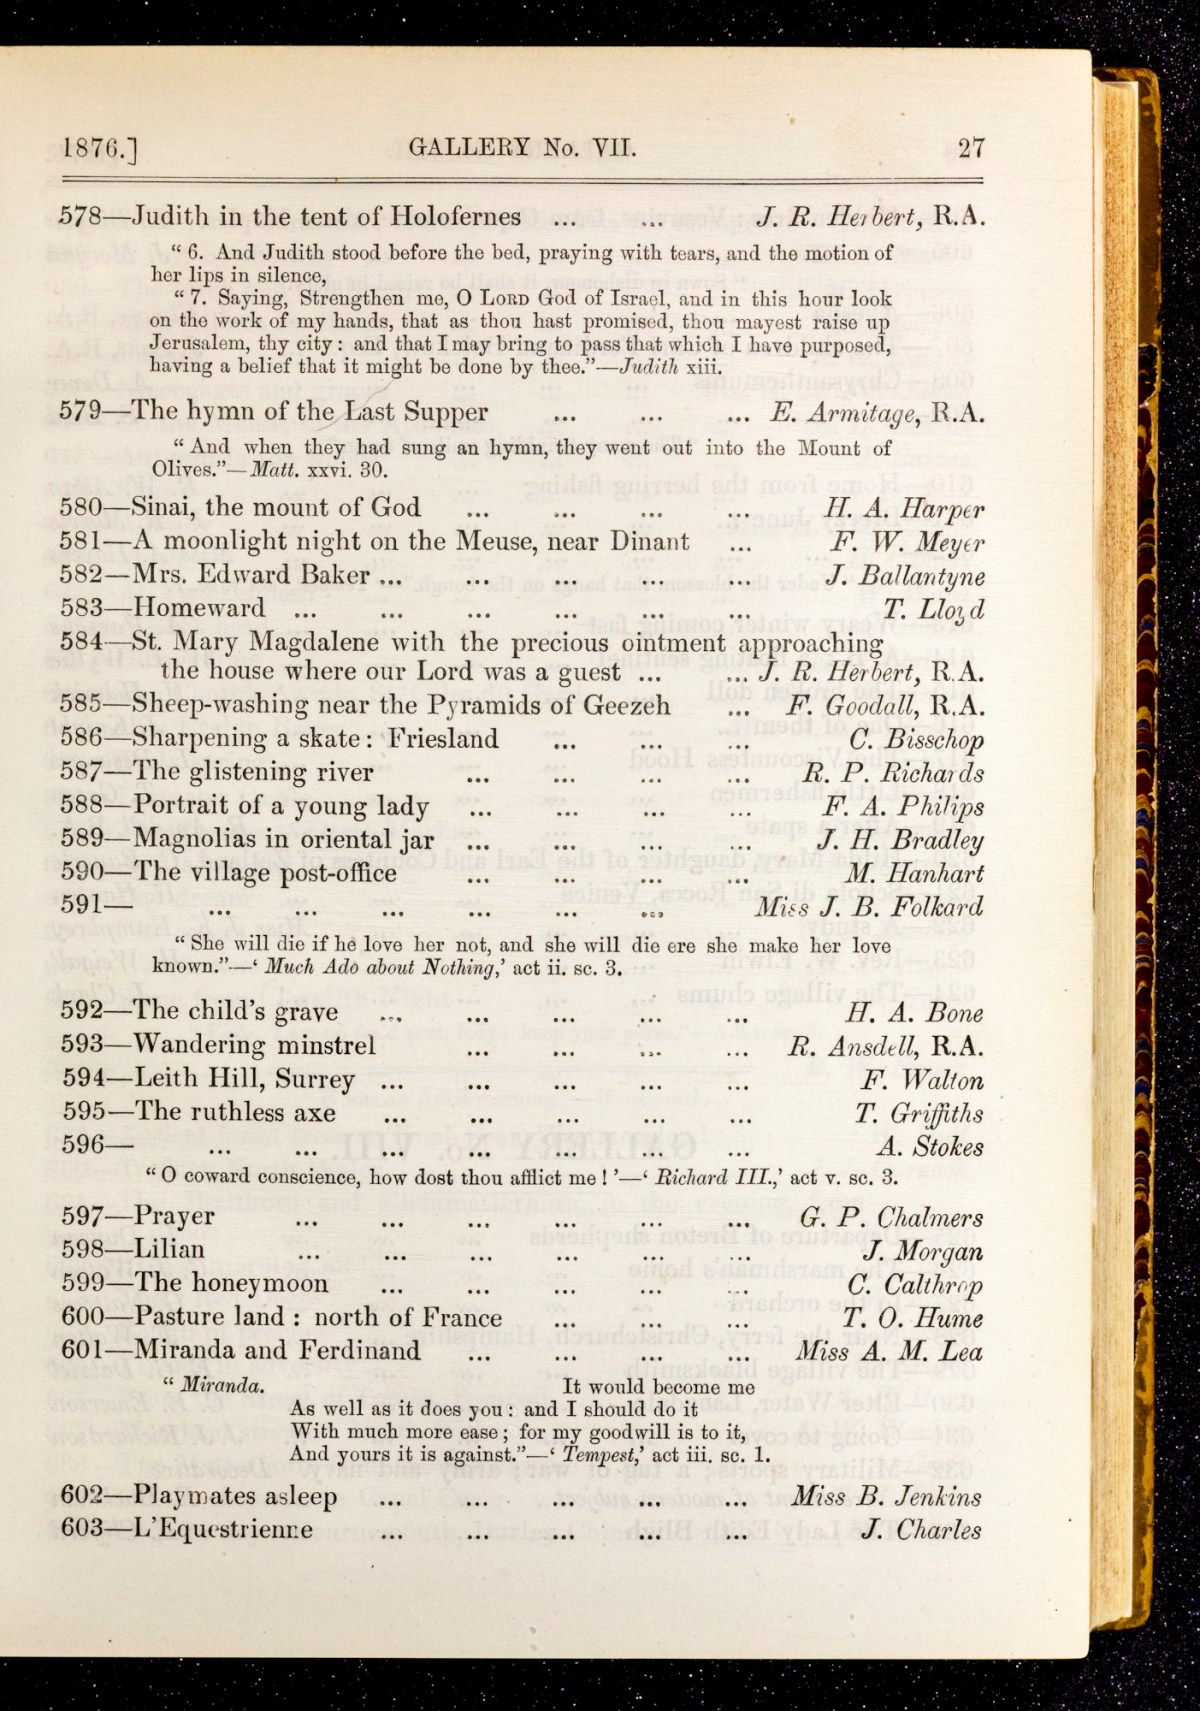 1876.] GALLERY No. VII. 27
578—Judith in the tent of Holofernes ... ... J. R. Herbert, R.A.
“ 6. And Judith stood before the bed, praying with tears, and the motion of
her lips in silence,
“ 7. Saying, Strengthen me, O LORD God of Israel, and in this hour look
on the work of my hands, that as thou hast promised, thou mayest raise up
Jerusalem, thy city : and that I may bring to pass that which I have purposed,
having a belief that it might be done by thee.”—Judith xiii.
579—The hymn of the Last Supper ... ... ... E. Armitage, R.A.
“ And when they had sung an hymn, they went out into the Mount of
Olives.”—Matt. xxvi. 30.
580—Sinai, the mount of God ... ... ... ... H. A. Harper
581—A moonlight night on the Meuse, near Dinant ... F. W. Meyer
582—Mrs. Edward Baker ... ... ... ... ... J. Ballantyne
583—Homeward ... ... ... ... ... ... T. Lloyd
584—St. Mary Magdalene with the precious ointment approaching
the house where our Lord was a guest ... ... J. R. Herbert, R.A.
585—Sheep-washing near the Pyramids of Geezeh ... F. Goodall, R.A.
586—Sharpening a skate : Friesland ... ... ... C. Bisschop
587—The glistening river ... ... ... ... R. P. Richards
588—Portrait of a young lady ... ... ... ... F. A. Philips
589—Magnolias in oriental jar ... ... ... ... J. H. Bradley
590—The village post-office ... ... ... ... M. Hanhart
591— ... ... ... ... ... ... Miss J. B. Folkard
“ She will die if he love her not, and she will die ere she make her love
known.”—‘ Much Ado about Nothing,’ act ii. sc. 3.
592—The child’s grave ... ... ... ... ... H. A. Bone
593—Wandering minstrel ... ... ... ... R. Ansdell, R.A.
594—Leith Hill, Surrey ... ... ... ... ... F. Walton
595—The ruthless axe ... ... ... ... ... T. Griffiths
596— ... ... ... ... ... ... ... A. Stokes
“ O coward conscience, how dost thou afflict me ! ’—‘ Richard III.,’ act v. sc. 3.
597—Prayer ... ... ... ... ... ... G. P. Chalmers
598—Lilian ... ... ... ... ... ... J. Morgan
599—The honeymoon ... ... ... ... ... C. Calthrop
600—Pasture land : north of France ... ... ... T. O. Hume
601—Miranda and Ferdinand ... ... ... ... Miss A. M. Lea
“ Miranda. It would become me
As well as it does you : and I should do it
With much more ease ; for my goodwill is to it,
And yours it is against.”—‘ Tempest,’ act iii. sc. 1.
602—Playmates asleep ... ... ... ... ... Miss B. Jenkins
603—L’Equestrienne ... ... ... ... ... J. Charles